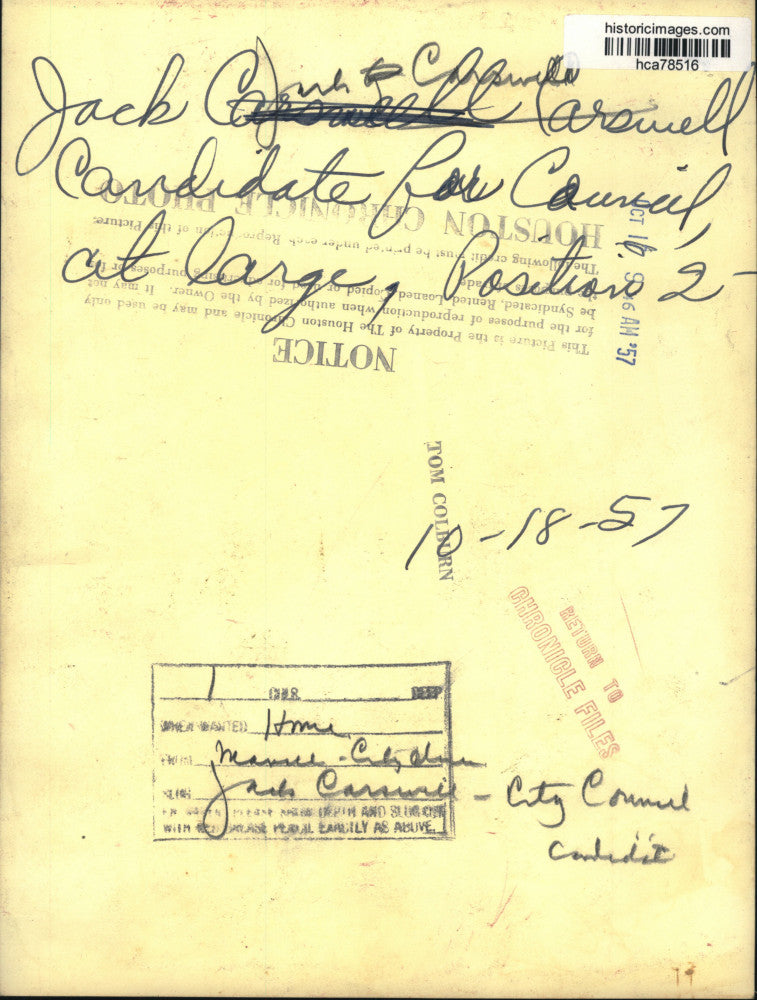 historicimages.com
hca78516
Jack Carswell
Jack Carswell Carswell
Candidate for Council,
at large, Position 2-
HOUSTON CHRONICLE PHOTO
The following credit must be printed under each Reproduction of this Picture.
be Syndicated, Rented, Loaned, Copied or used for advertising purposes or
for the purposes of reproduction when authorized by the Owner. It may not
This Picture is the Property of The Houston Chronicle and may be used only
NOTICE
OCT 16 9 46 AM '57
TOM COLBURN
10-18-57
RETURN TO
CHRONICLE FILES
1 COLS. DEEP
WHEN WANTED Home
FROM - City desk
SLUG Jack Carswell - City Council
Candidate
PLEASE MARK DEPTH AND SLUG ONE
WITH RED GREASE PENCIL EXACTLY AS ABOVE.